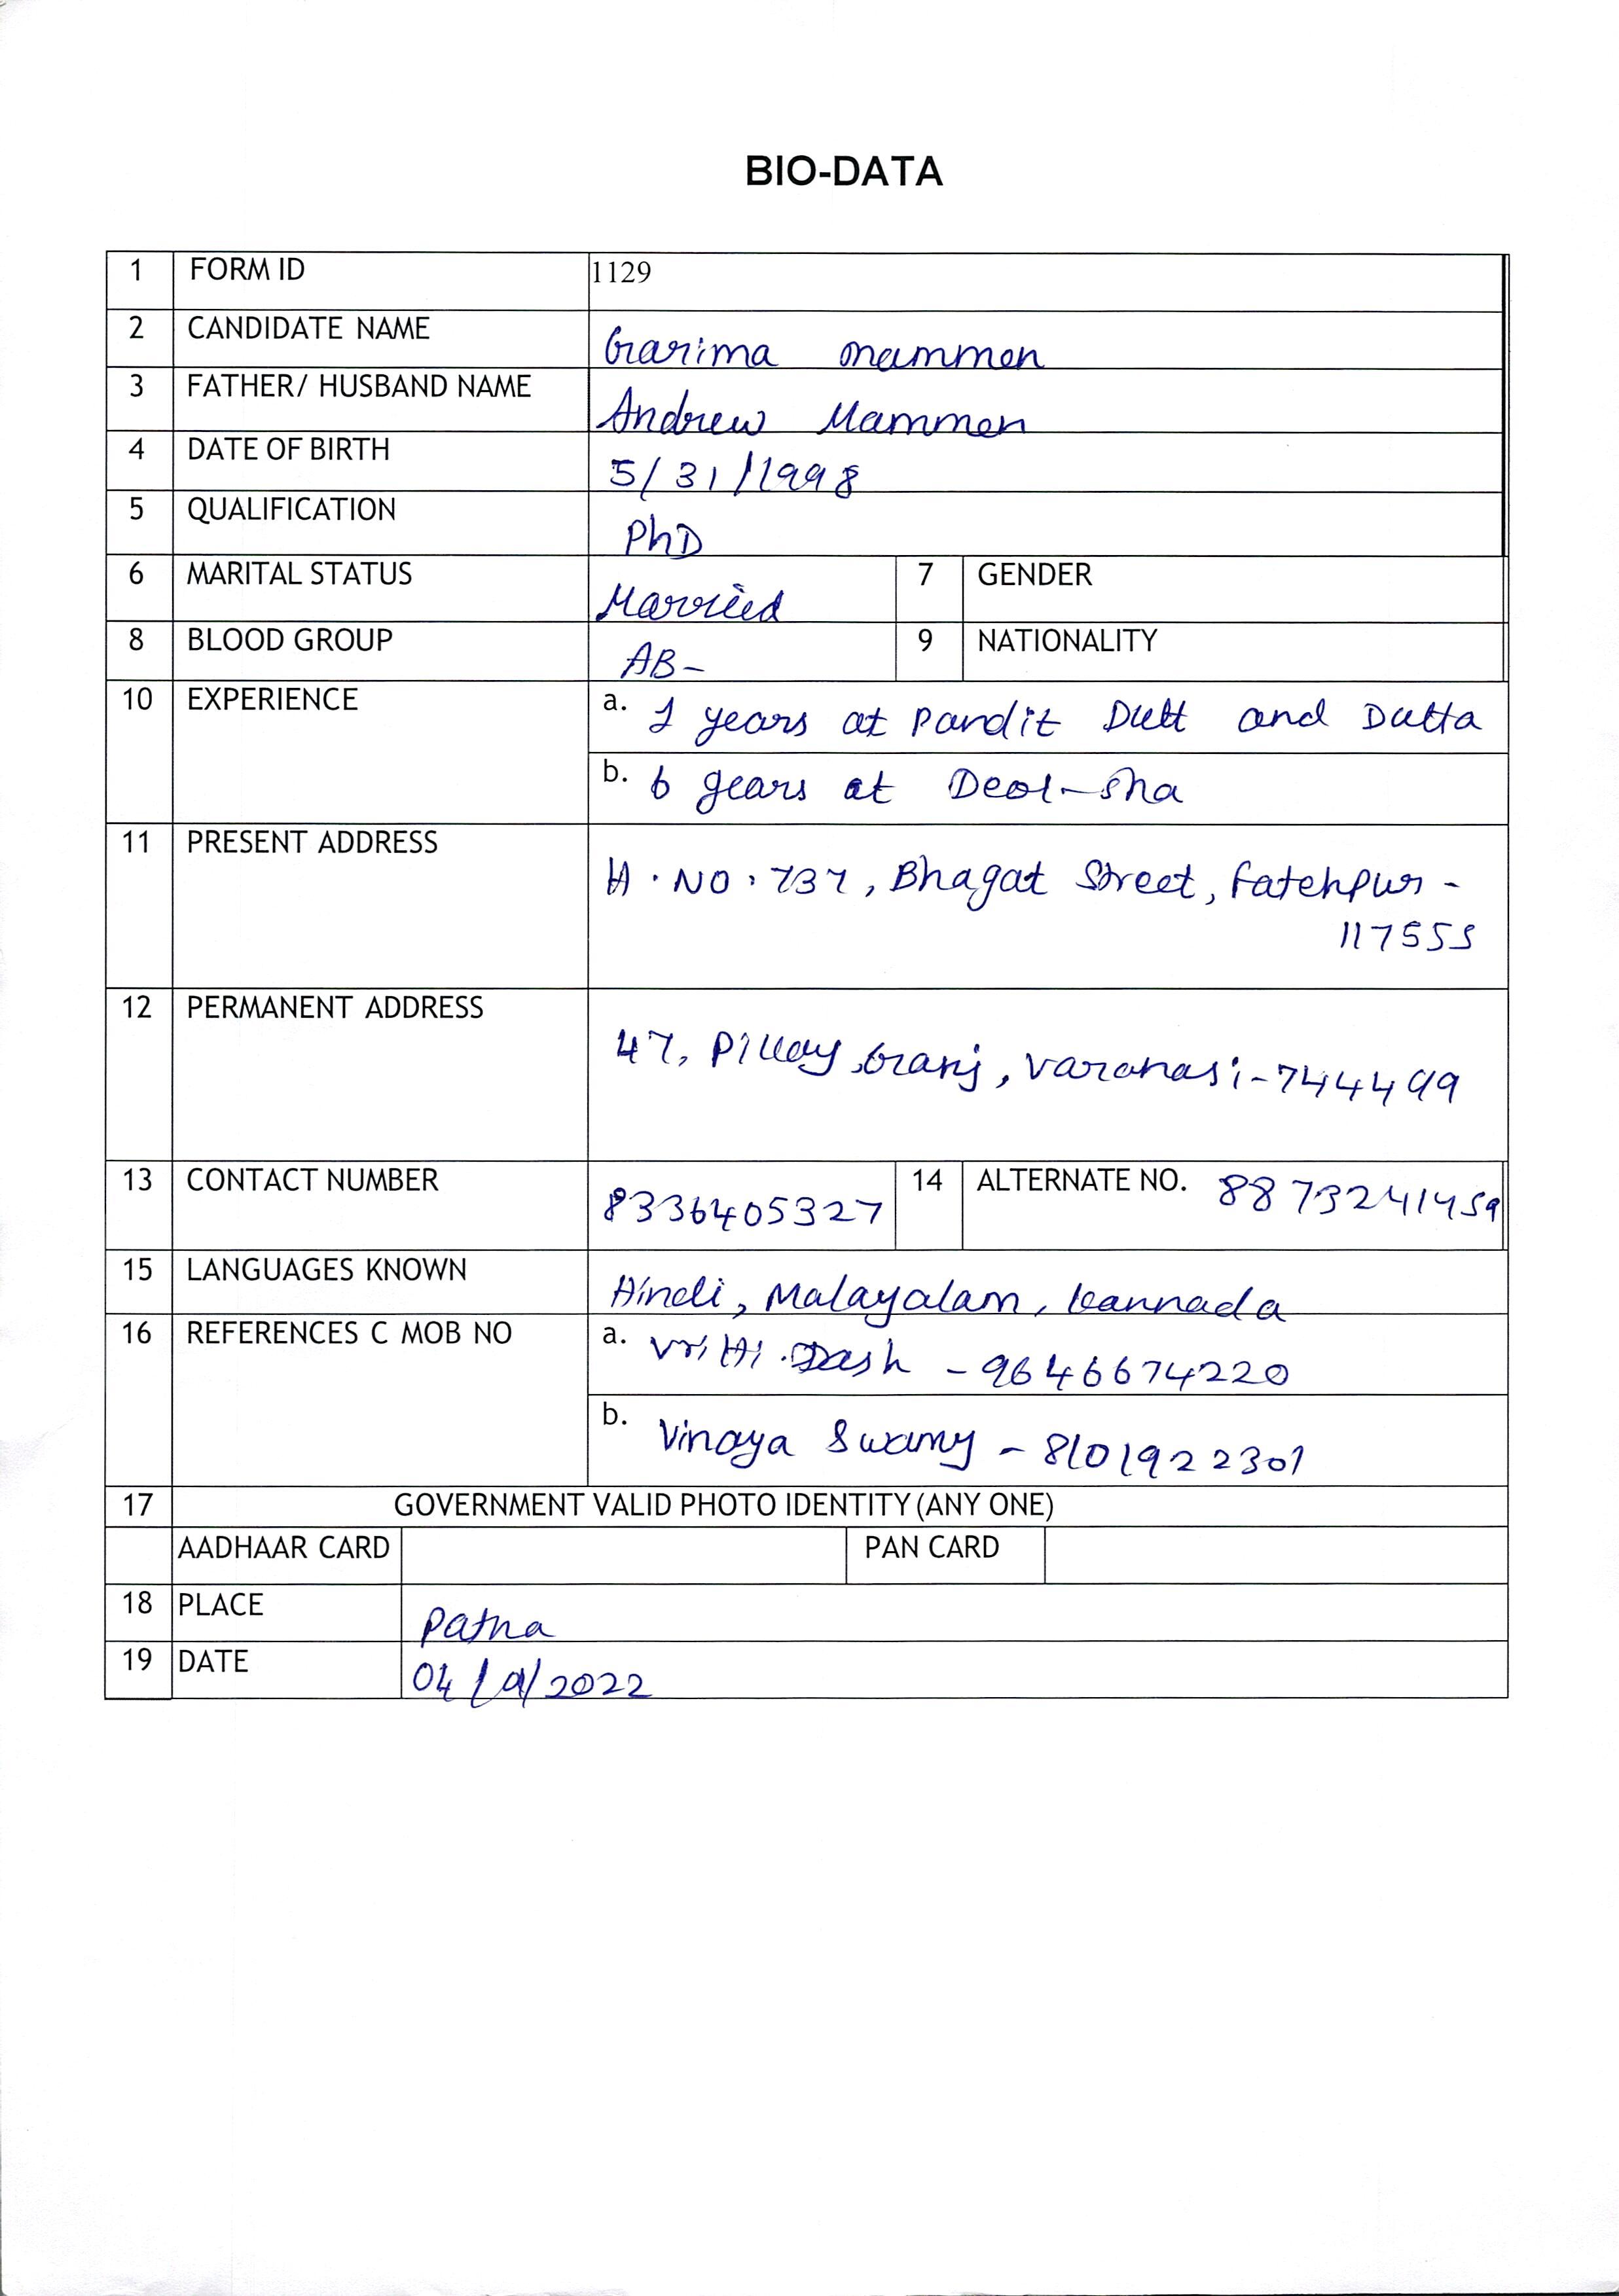 BIO-DATA
1 FORM ID 1129
2 CANDIDATE NAME Garima Mammen
3 FATHER/ HUSBAND NAME Andrew Mammen
4 DATE OF BIRTH 5/31/1998
5 QUALIFICATION PhD
6 MARITAL STATUS Married 7 GENDER
8 BLOOD GROUP AB- 9 NATIONALITY
10 EXPERIENCE a. 1 years at Pandit Dutt and Dutta
b. 6 years at Deol-Sha
11 PRESENT ADDRESS H.NO.737, Bhagat Street, Fatehpur -
117555
12 PERMANENT ADDRESS 47, Pillay Ganj, Varanasi-744499
13 CONTACT NUMBER 8336405327 14 ALTERNATE NO. 8873241459
15 LANGUAGES KNOWN Hindi, Malayalam, Kannada
16 REFERENCES C MOB NO a. Vritti Dash - 9646674220
b. Vinaya Swamy - 8101922301
17 GOVERNMENT VALID PHOTO IDENTITY (ANY ONE)
AADHAAR CARD PAN CARD
18 PLACE Patna
19 DATE